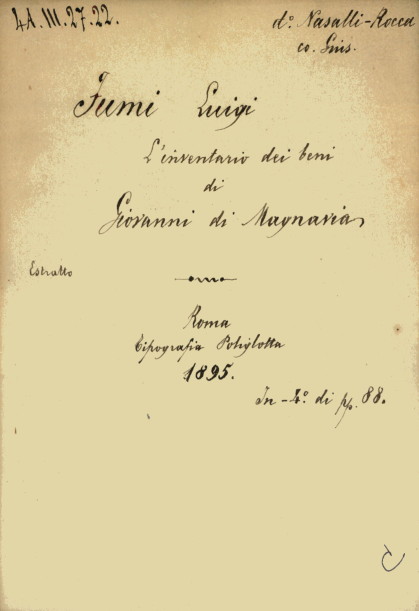 4A.III.27.22.
d.º Nasalli-Rocca
co. Guis.
Fumi Luigi
L'inventario dei beni
di
Giovanni di Magnavia
Estratto
Roma
Tipografia Poliglotta
1895.
In-4.º di pp. 88.
C